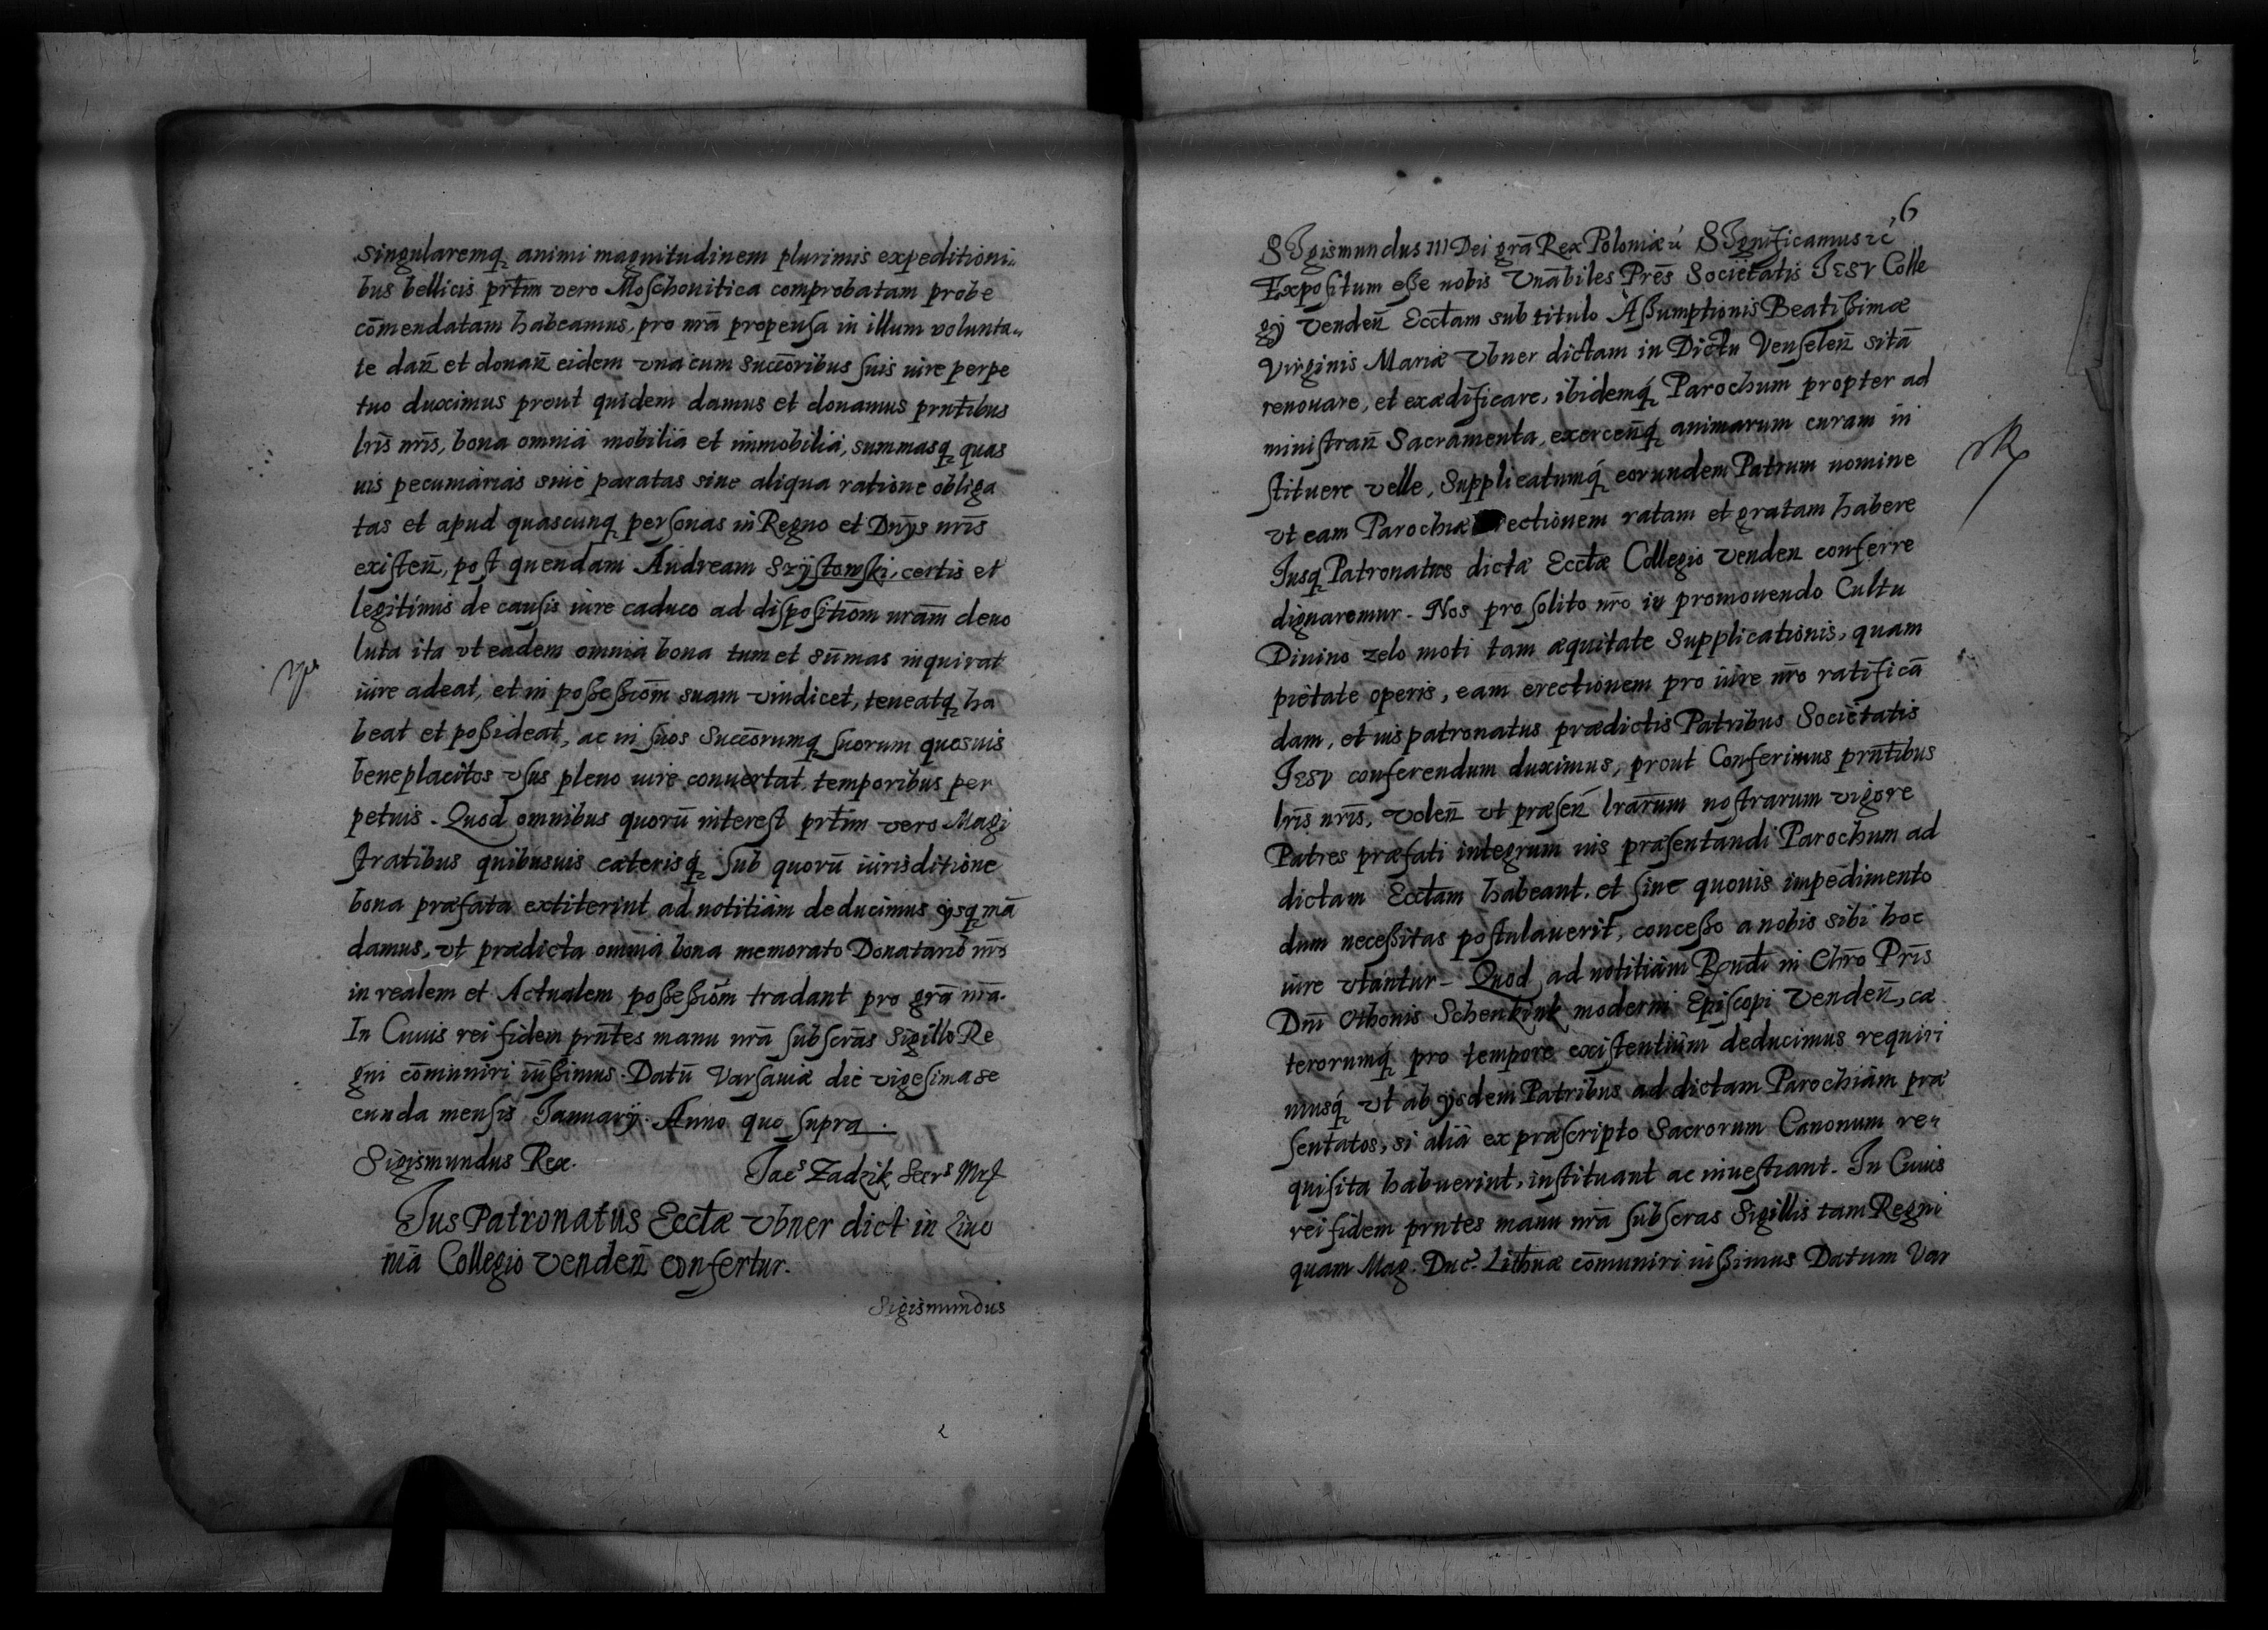 singularemq animi magnitudinem plurimis expeditioni„
bus bellicis prtim vero Moschouitica comprobatam probe
cōmendatam habeamus, pro nrā propensa in illum volunta„
te dan̄ et donan̄ eidem vna cum Succōribus suis iure perpe
tuo duximus prout quidem damus et donamus prntibus
lris nris, bona omnia mobilia et immobilia, summasq quas
uis pecuniarias siue paratas siue aliqua ratione obliga
tas et apud quascunq personas in Regno et Dnijs nris
existen̄, post quendam Andream Szystowski, certis et
legitimis de causis iure caduco ad dispositiōm nrām deuo
luta ita vt eadem omnia bona tum et sum̄as inquirat
iure adeat, et in possessiōm suam vindicet, teneatq ha
beat et possideat, ac in suos Succōrumq suorum quosuis
beneplacitos vsus pleno iure conuertat temporibus per
petuis. Quod omnibus quorū interest prtim vero Magi
stratibus quibusuis cæterisq sub quorū iurisditione
bona præfata extiterint ad notitiam deducimus ijsq mā
damus, vt prædicta omnia bona memorato Donatario nr̄o
in realem et Actualem possessiōm tradant pro grā nrā.
In Cuius rei fidem prntes manu nrā subscrās Sigillo Re
gni cōmuniri iussimus. Datū Varsauiæ die vigesima se
cunda mensis Ianuarij. Anno quo supra.
Sigismundus Rex.
Iacs Zadzik Secrs Mrt
Ius Patronatus Ecctæ vbner dict in Liuo
niā Collegio venden̄ confertur.
Sigismundus
6
SIgismundus III Dei grā Rex Poloniæ &c SIgnificamus &c
Expositum esse nobis Vnābiles Prēs Societatis IESV Colle
gij venden̄ Ecctam sub titulo Assumptionis Beatissimæ
Virginis Mariæ Vbner dictam in Dictu Venselen̄ sitā
renouare, et exædificare, ibidemq Parochum propter ad
ministran̄ Sacramenta, exercen̄q animarum curam in
stituere velle, Supplicatumq eorundem Patrum nomine
vt eam Parochiæ erectionem ratam et gratam habere
Iusq Patronatus dictæ Ecctæ Collegio venden conferre
dignaremur. Nos pro solito nr̄o in promouendo Cultu
Diuino zelo moti tam æquitate Supplicationis, quam
pietate operis, eam erectionem pro iure nr̄o ratificā
dam, et ius patronatus prædictis Patribus Societatis
IESV conferendum duximus, prout Conferimus prntibus
lris nris, volen̄ vt præsen̄ lrārum nostrarum vigore
Patres præfati integrum ius præsentandi Parochum ad
dictam Ecctam habeant, et sine quouis impedimento
dum necessitas postulauerit, concesso a nobis sibi hoc
iure vtantur. Quod ad notitiam Rndi in Chrō Pris
Dni Othonis Schenkink moderni Episcopi Venden̄, cæ
terorumq pro tempore existentium deducimus requiri
musq vt ab ijsdem Patribus ad dictam Parochiam præ
sentatos, si alia ex præscripto Sacrorum Canonum re„
quisita habuerint, instituant ac inuestiant. In Cuius
rei fidem prntes manu nrā subscras Sigillis tam Regni
quam Mag. Duc. Lithuæ cōmuniri iussimus Datum Var